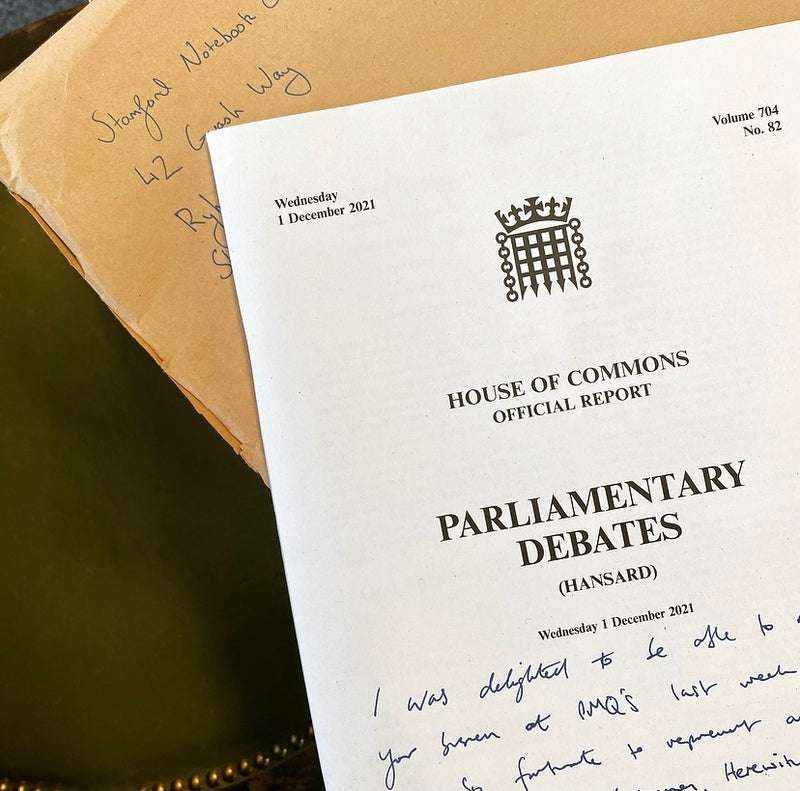 Stamford Notebook
42 Gwash Way
Volume 704
No. 82
Wednesday
1 December 2021
HOUSE OF COMMONS
OFFICIAL REPORT
PARLIAMENTARY
DEBATES
(HANSARD)
Wednesday 1 December 2021
I was delighted to be able to
your at PMQ's last week
fortunate to represent
Herewith